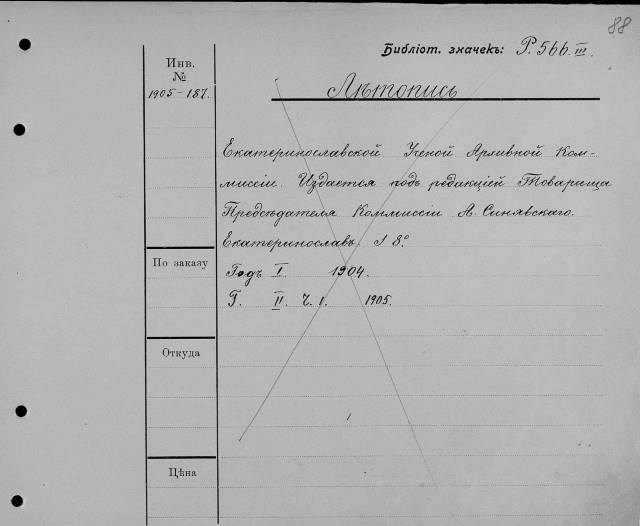 88
Библіот. значекъ: P. 566 III.
Инв.
№
1905-187.
Лѣтопись
Екатеринославской Ученой Архивной Ком-
миссіи. Издается подъ редакціей Товарища
Предсѣдателя Коммиссіи А. Синявскаго.
Екатеринославъ. 8°
По заказу
Годъ I. 1904.
Г. II. Ч. I. 1905.
Откуда
Цѣна